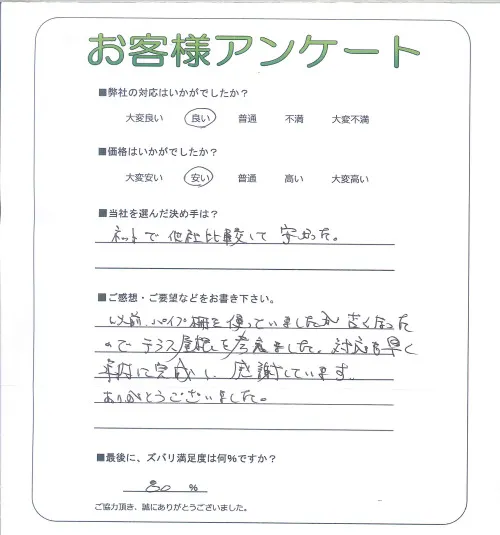 お客様アンケート
■弊社の対応はいかがでしたか？
大変良い 良い 普通 不満 大変不満
■価格はいかがでしたか？
大変安い 安い 普通 高い 大変高い
■当社を選んだ決め手は？
ネットで他社比較して安かった。
■ご感想・ご要望などをお書き下さい。
以前パイプ棚を使っていましたが古くなった
のでテラス屋根を考えました。対応も早く
に完成し、感謝しています。
ありがとうございました。
■最後に、ズバリ満足度は何％ですか？
80 ％
ご協力頂き、誠にありがとうございました。